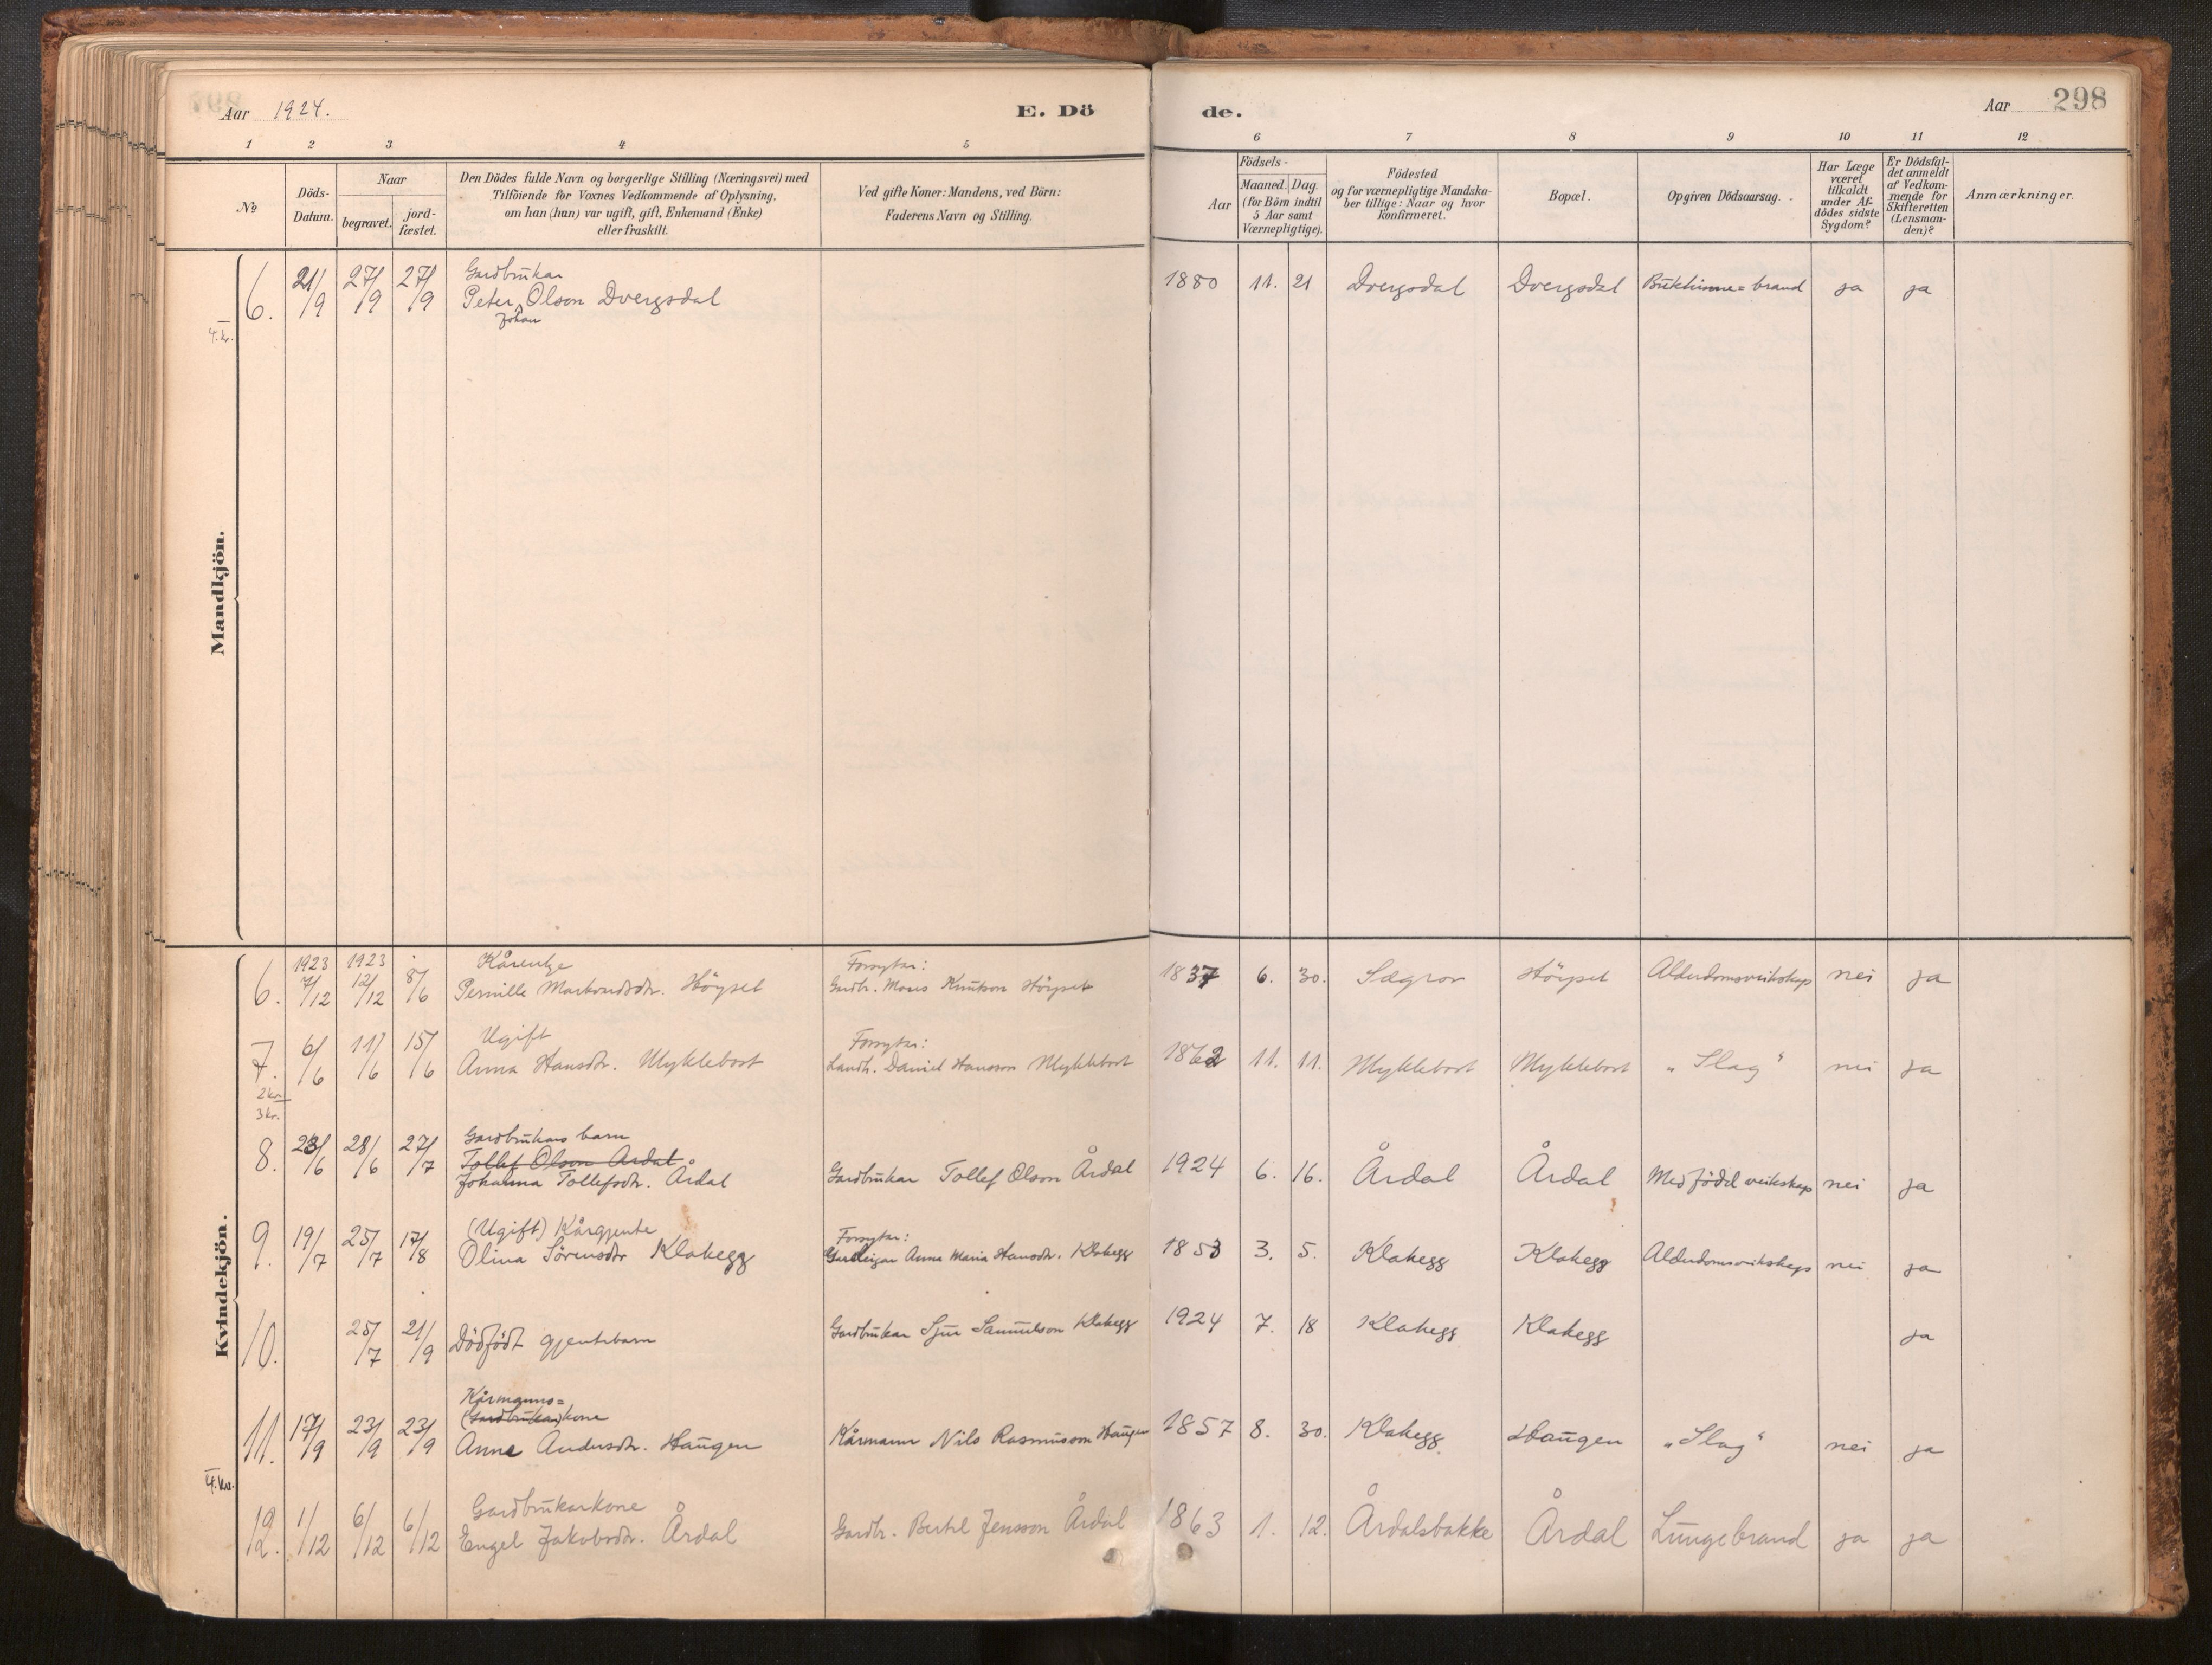 Aar 1924.
E. Dö
de.
Aar
298
1 2 3 4 5 6 7 8 9 10 11 12
No
Döds-
Datum.
Naar
begravet.
jord-
fæstet.
Den Dödes fulde Navn og borgerlige Stilling (Næringsvei) med
Tilföiende for Voxnes Vedkommende af Oplysning,
om han (hun) var ugift, gift, Enkemand (Enke)
eller fraskilt.
Ved gifte Koner: Mandens, ved Börn:
Faderens Navn og Stilling.
Födsels-
Aar
Maaned. Dag.
(for Börn indtil
5 Aar samt
Værnepligtige).
Födested
og for værnepligtige Mandska-
ber tillige: Naar og hvor
Konfirmeret.
Bopæl.
Opgiven Dödsaarsag.
Har Læge
været
tilkaldt
under Af-
dödes sidste
Sygdom?
Er Dödsfal-
det anmeldt
af Vedkom-
mende for
Skifteretten
(Lensman-
den)?
Anmærkninger.
Mandkjön.
Gardbrukar
6. 21/9 27/9 27/9 Peter Olson Dvergsdal 1880 11. 21 Dvergsdal Dvergsdal Bukhinne=brand ja ja
Johan
4. kr.
Kvindekjön.
1923 1923 Kårenkje Forsytar:
6. 7/12 12/12 8/6 Pernille Markvardsdtr. Höyset Gardbr. Moses Knutson Höyset 1837 6. 30. Sægrov Höyset Alderdomsveikskap nei ja
Ugift Forsytar:
7. 6/6 11/6 15/6 Anna Hansdtr. Myklebost Landh. Daniel Hansson Myklebost 1862 11. 11. Myklebost Myklebost "Slag" nei ja
2 kr.
3 kr.
Gardbrukars barn
8. 23/6 28/6 27/7 Tollef Olson Årdal
Johanna Tollefsdtr. Årdal Gardbrukar Tollef Olson Årdal 1924 6. 16. Årdal Årdal Medfödd veikskap nei ja
(Ugift) Kårgjente Forsytar:
9. 19/7 25/7 17/8 Olina Sörensdtr Klakegg Gardeigar Anna Maria Hansdtr. Klakegg 1853 3. 5. Klakegg Klakegg Alderdomsveikskap nei ja
10. 25/7 21/9 Dödfödt gjentebarn Gardbrukar Sjur Samuelson Klakegg 1924 7. 18 Klakegg Klakegg ja
Kårmanns=
(Gardbrukar)kone
11. 17/9 23/9 23/9 Anne Andersdtr. Haugen Kårmann Nils Rasmusson Haugen 1857 8. 30. Klakegg Haugen "Slag" nei ja
4. kr.
Gardbrukarkone
12. 1/12 6/12 6/12 Engel Jakobsdtr. Årdal Gardbr. Bertel Jensson Årdal 1863 1. 12. Årdalsbakke Årdal Lungebrand ja ja